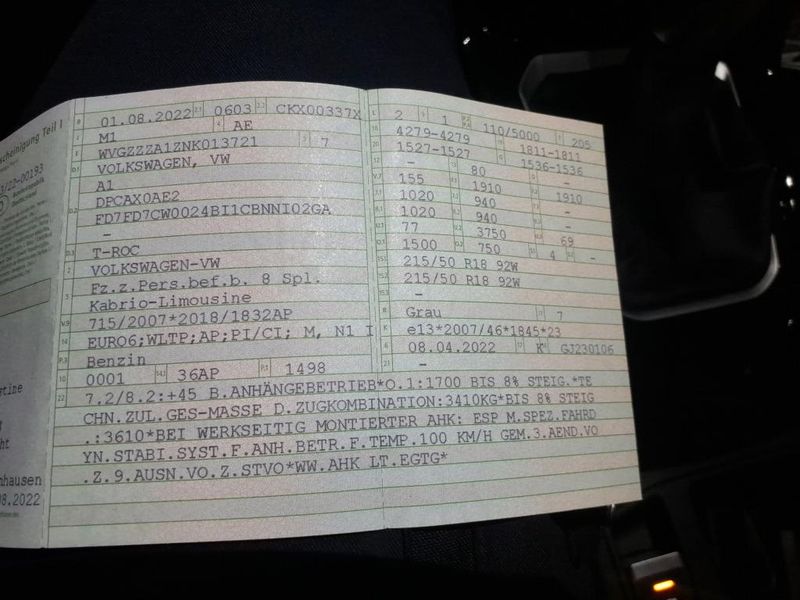 01.08.2022 0603 CKX00337X
M1 AE
WVGZZZA1ZNK013721 7
VOLKSWAGEN, VW
A1
DPCAX0AE2
FD7FD7CW0024BI1CBNNI02GA
–
T-ROC
VOLKSWAGEN-VW
Fz.z.Pers.bef.b. 8 Spl.
Kabrio-Limousine
715/2007*2018/1832AP
EURO6;WLTP;AP;PI/CI; M, N1 I
Benzin
0001 36AP 1498
2 1 110/5000 205
4279-4279 1811-1811
1527-1527 1536-1536
– 80 –
155 1910 1910
1020 940 –
1020 940 –
77 3750 69
1500 750 4 –
215/50 R18 92W
215/50 R18 92W
–
Grau 7
e13*2007/46*1845*23
08.04.2022 K GJ230106
–
7.2/8.2:+45 B.ANHÄNGEBETRIEB*O.1:1700 BIS 8% STEIG.*TE
CHN.ZUL.GES-MASSE D.ZUGKOMBINATION:3410KG*BIS 8% STEIG
.:3610*BEI WERKSEITIG MONTIERTER AHK: ESP M.SPEZ.FAHRD
YN.STABI.SYST.F.ANH.BETR.F.TEMP.100 KM/H GEM.3.AEND.VO
.Z.9.AUSN.VO.Z.STVO*WW.AHK LT.EGTG*
scheinigung Teil I
/22-00193
tine
ht
nhausen
08.2022